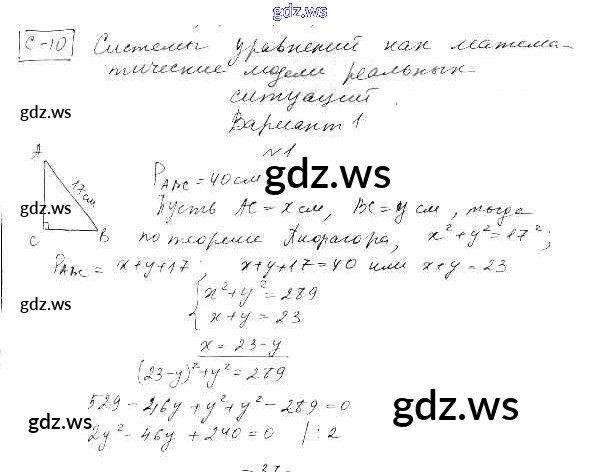 gdz.ws
С-10 Системы уравнений как матема-
тические модели реальных
ситуаций.
gdz.ws
Вариант 1
№1
A
17см
C
B
P_ABC = 40см
gdz.ws
gdz.ws
Пусть AC = x см, BC = y см, тогда
по теореме Пифагора, x² + y² = 17²;
P_ABC = x + y + 17; x + y + 17 = 40 или x + y = 23
gdz.ws
{ x² + y² = 289
x + y = 23
x = 23 - y
(23-y)² + y² = 289
529 - 46y + y² + y² - 289 = 0
gdz.ws
gdz.ws
2y² - 46y + 240 = 0 /:2